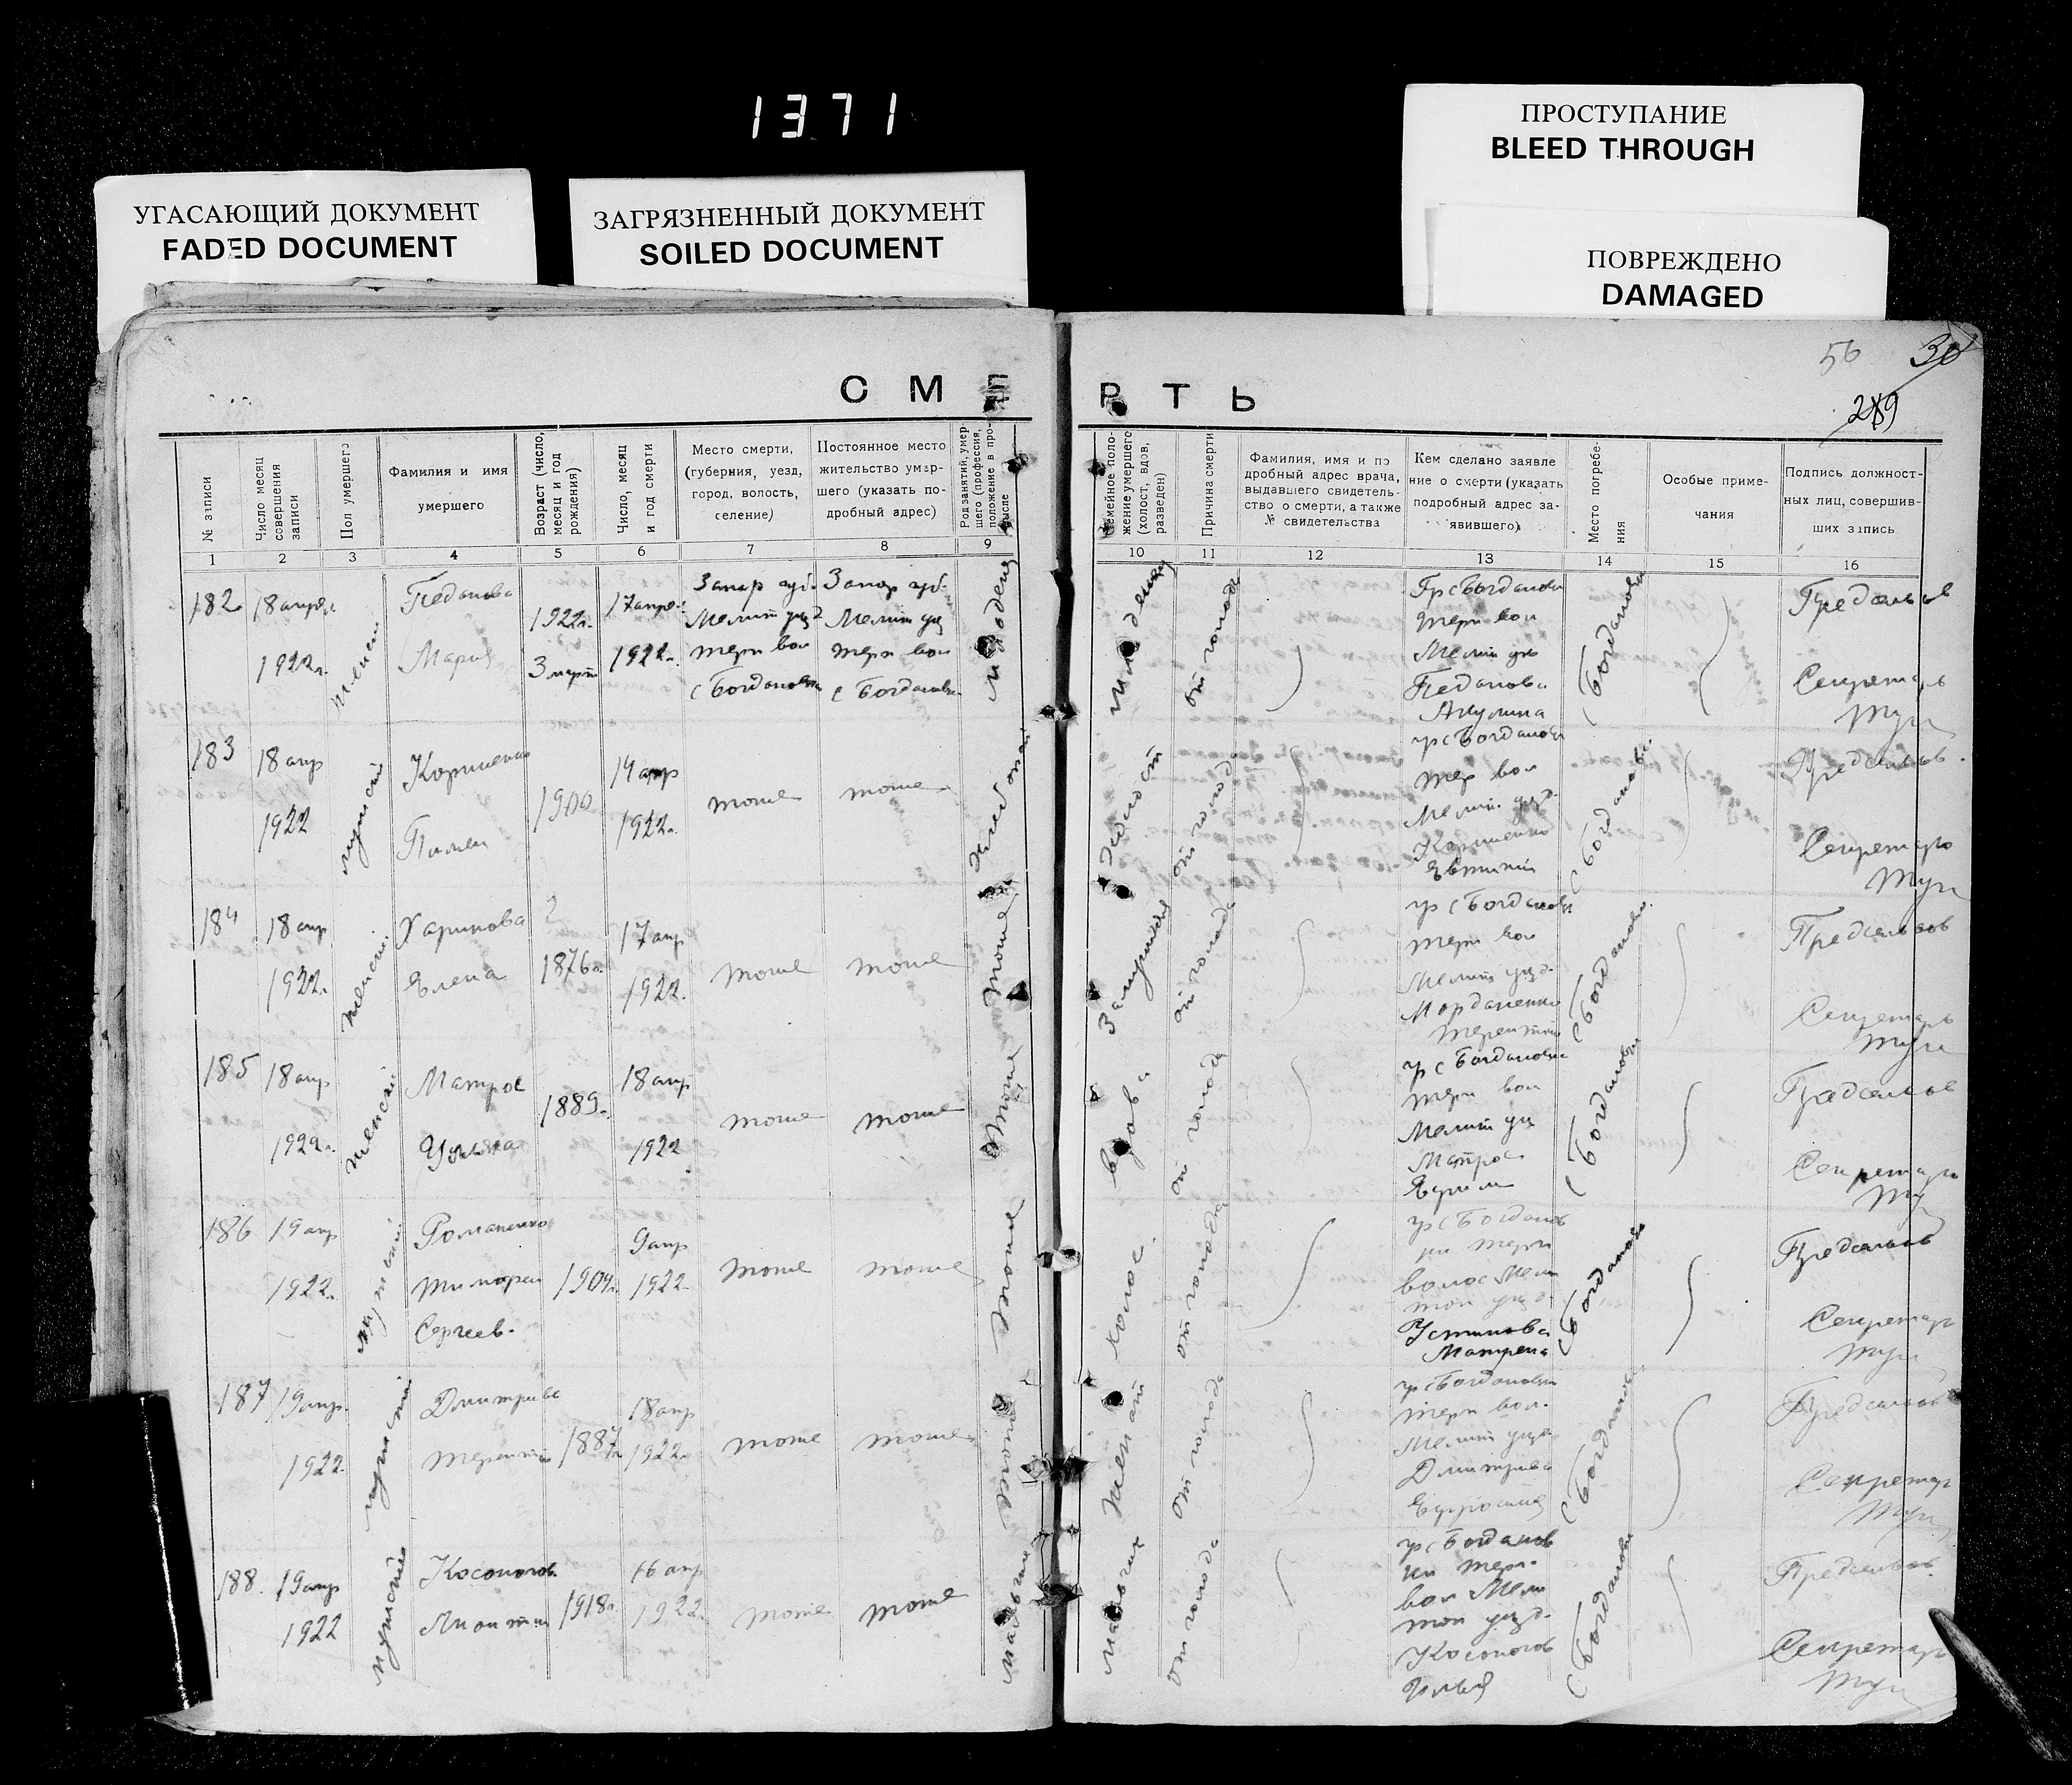 1371
УГАСАЮЩИЙ ДОКУМЕНТ
FADED DOCUMENT
ЗАГРЯЗНЕННЫЙ ДОКУМЕНТ
SOILED DOCUMENT
ПРОСТУПАНИЕ
BLEED THROUGH
ПОВРЕЖДЕНО
DAMAGED
56 30
289
СМЕРТЬ
№ записи
Число месяц совершения записи
Пол умершего
Фамилия и имя умершего
Возраст (число, месяц и год рождения)
Число, месяц и год смерти
Место смерти, (губерния, уезд, город, волость, селение)
Постоянное место жительство умершего (указать подробный адрес)
Род занятий, умершего (профессия, положение в промысле
Семейное положение умершего (холост, вдов, разведен)
Причина смерти
Фамилия, имя и подробный адрес врача, выдавшего свидетельство о смерти, а также № свидетельства
Кем сделано заявление о смерти (указать подробный адрес заявившего)
Место погребения
Особые примечания
Подпись должностных лиц, совершивших запись
1 2 3 4 5 6 7 8 9 10 11 12 13 14 15 16
182 18 апрел. 1922г. женск
Педанова
Мария
1922г. 3 март
17 апрел. 1922г.
Запор губ.
Мелит уезд
Терп вол
с Богдановки
Запор губ.
Мелит уезд
Терп вол
с Богдановки
младенец
младенец
от голода
Гр с Богдановки
Терп вол
Мелит уез
Педанова
Акулина
с Богдановки
Предсельсов
Секретарь
183 18 апр 1922 мужской
Коршенко
Пимен
1900
14 апр 1922г.
тоже тоже
хлебопаш
холост
от голод
гр с Богдановки
Тер вол
Мелит уезд.
Коршенко
Евтихий
с Богдановк.
Предсельсов.
Секретарь
184 18 апр 1922г. женск.
Харикова
Елена
1876г.
17 апр 1922.
тоже тоже
тоже
Замужняя
от голода
гр с Богдановки
Терп вол
Мелит уезд.
Терентий
с Богдановк.
Предсельсов
Секретарь
185 18 апр 1922г. женск.
Матрос
Ульяна
1889г.
18 апр 1922
тоже тоже
тоже
вдова
от голода
гр с Богдановки
Терп вол
Мелит уез
Матрос
с Богдановки
Предсельсов
Секретарь
186 19 апр 1922. мужской
Романенко
Тимофей
Сергеев.
1904г.
9 апр 1922.
тоже тоже
тоже
холос.
от голода
гр с Богданов
ки Терп
волос Мели
топ уезд.
Устинова
Матрена
с Богдановк
Предсельсов
Секретарь
187 19 апр. 1922. мужской
Дмитриев
Терентий
1887г.
18 апр 1922.
тоже тоже
тоже
женат
от голода
гр с Богдановки
Терп вол.
Мелит уезд.
Дмитриева
с Богдановки
Предсельсов
Секретарь
188. 19 апр 1922 мужской
Косоногов
1918г.
16 апр 1922.
тоже тоже
мальчик
мальчик
от голода
гр с Богданов
ки Терп.
вол Мели
топ уезд.
Косоногов
Илья
с Богдановки
Предсельсов.
Секретарь